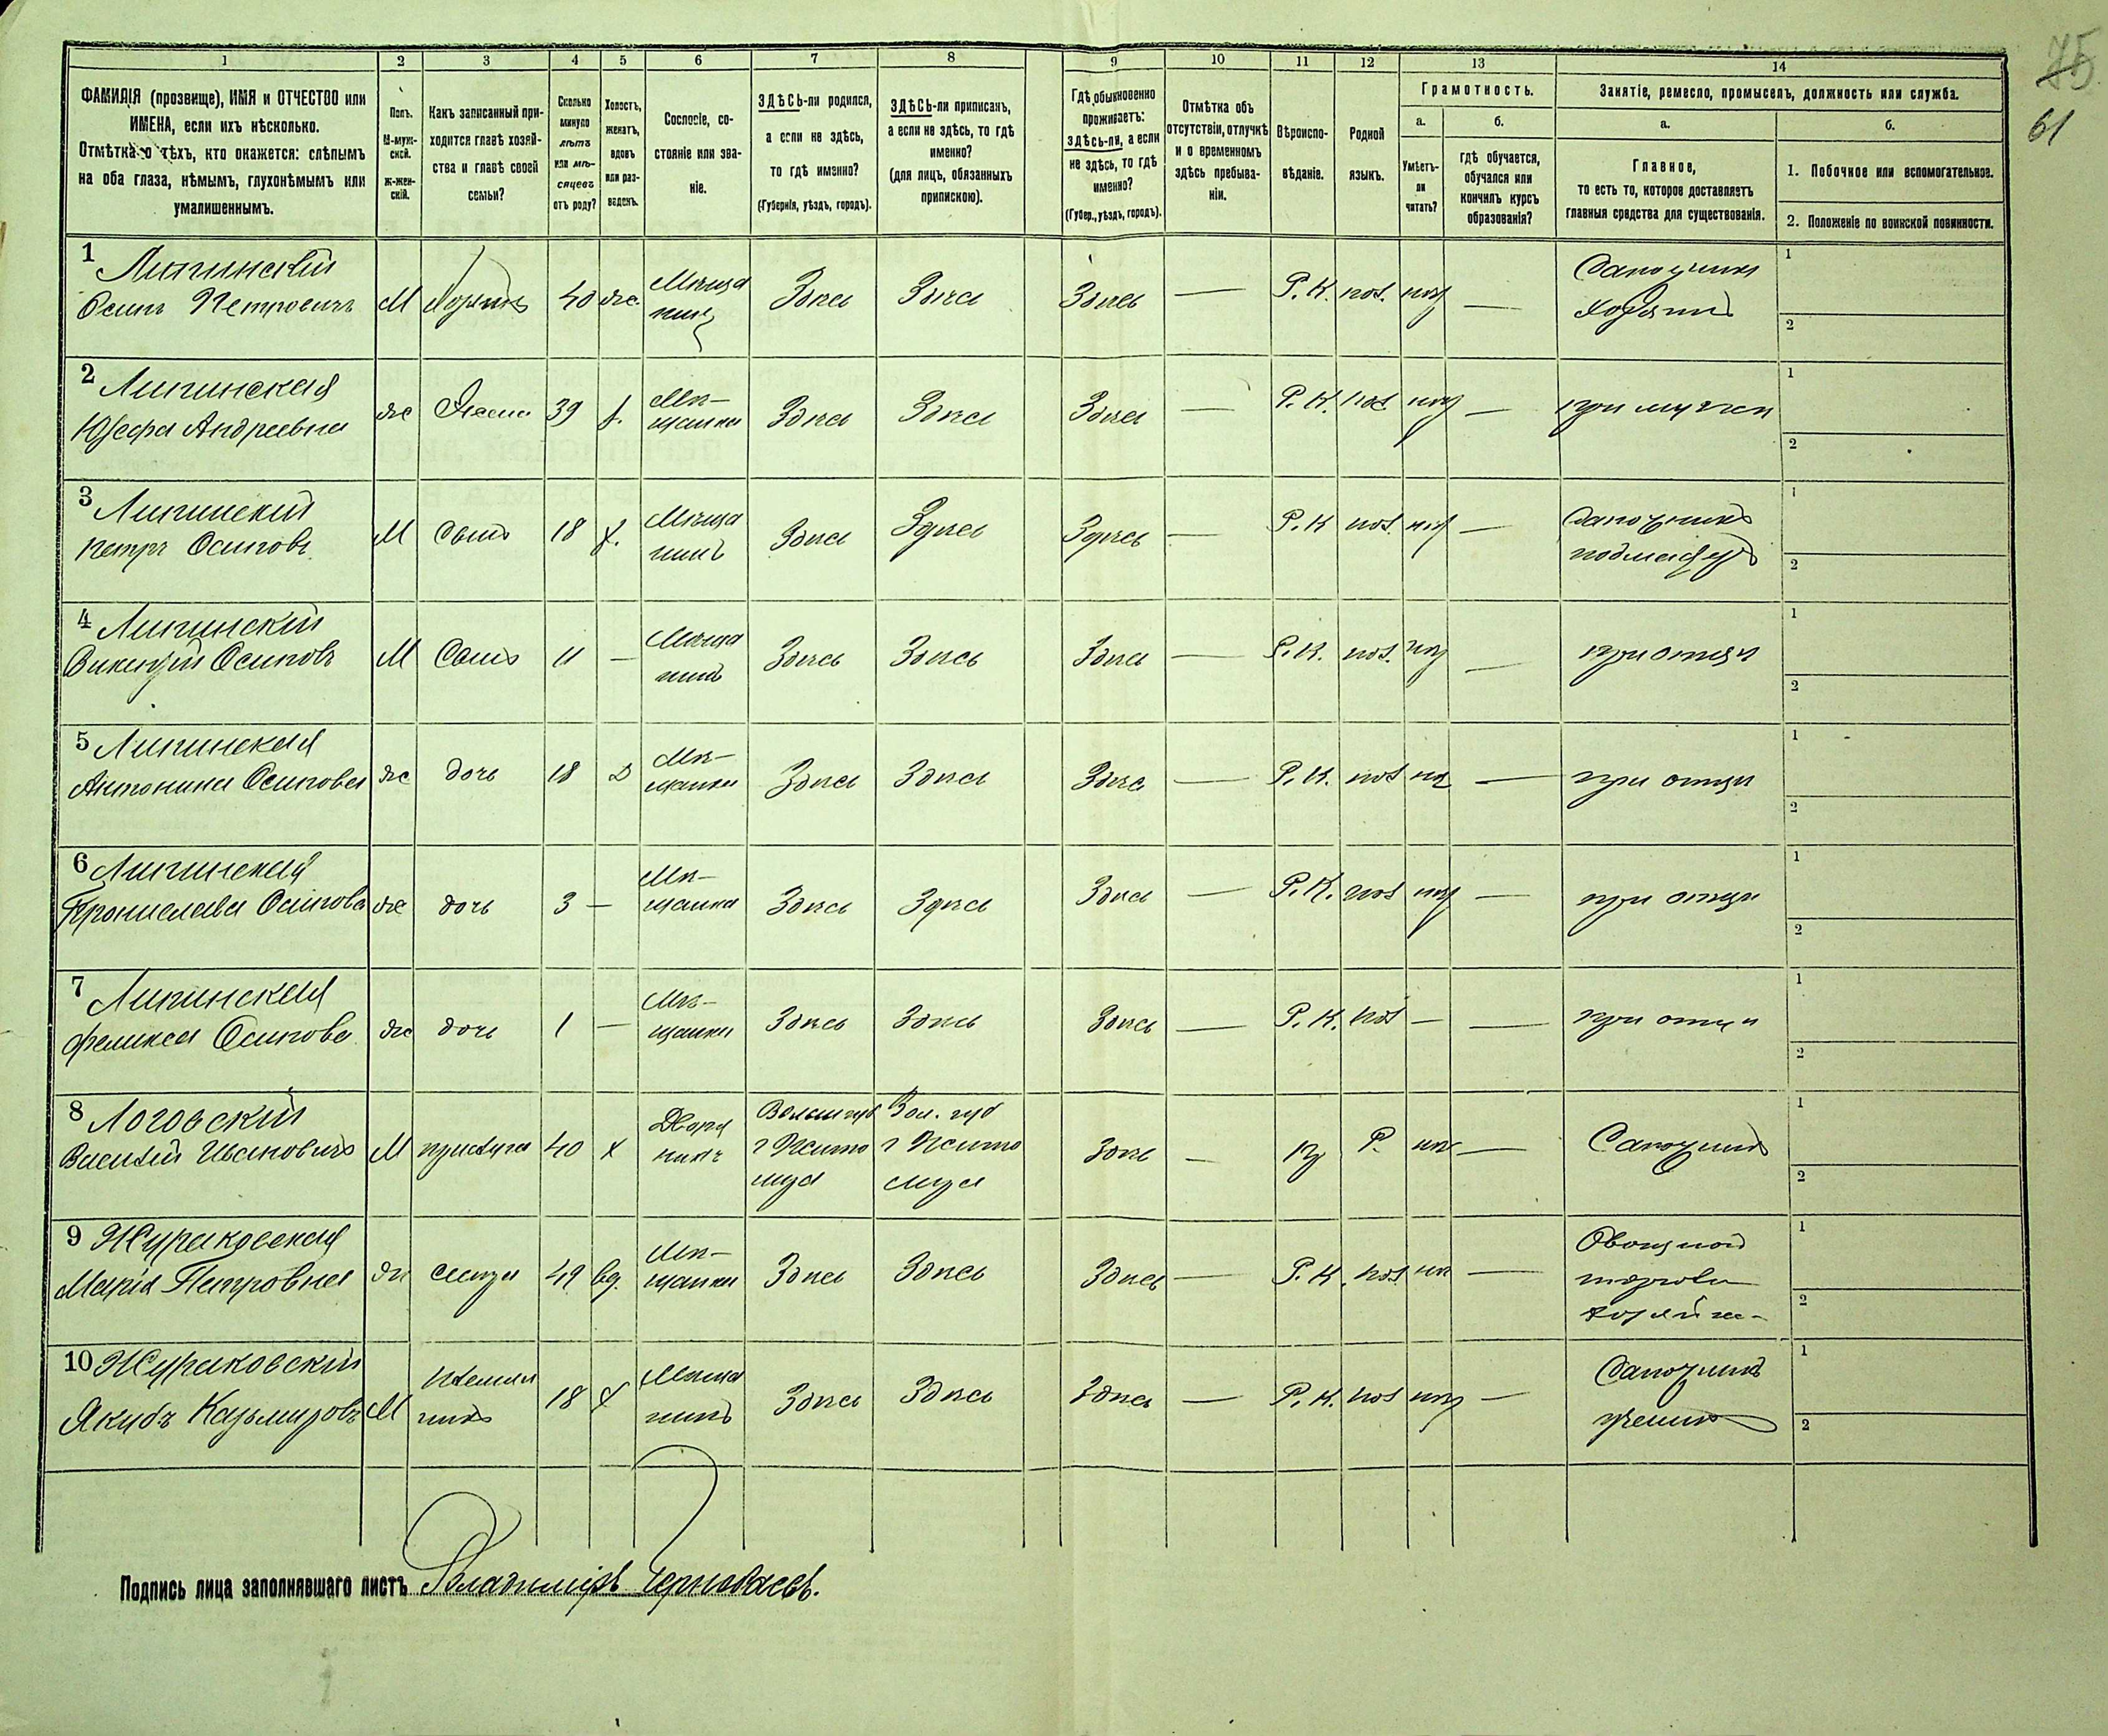 75
61
1 2 3 4 5 6 7 8 9 10 11 12 13 14
ФАМИЛІЯ (прозвище), ИМЯ и ОТЧЕСТВО или
ИМЕНА, если ихъ нѣсколько.
Отмѣтка о тѣхъ, кто окажется: слѣпымъ
на оба глаза, нѣмымъ, глухонѣмымъ или
умалишеннымъ.
Полъ.
М-муж-
ской.
Ж-жен-
скій.
Какъ записанный при-
ходится главѣ хозяй-
ства и главѣ своей
семьи?
Сколько
минуло
лѣтъ
или мѣ-
сяцевъ
отъ роду?
Холостъ,
женатъ,
вдовъ
или раз-
веденъ.
Сословіе, со-
стояніе или зва-
ніе.
ЗДѢСЬ-ли родился,
а если не здѣсь,
то гдѣ именно?
(Губернія, уѣздъ, городъ).
ЗДѢСЬ-ли приписанъ,
а если не здѣсь, то гдѣ
именно?
(для лицъ, обязанныхъ
припискою).
Гдѣ обыкновенно
проживаетъ:
здѣсь-ли, а если
не здѣсь, то гдѣ
именно?
(Губер., уѣздъ, городъ).
Отмѣтка объ
отсутствіи, отлучкѣ
и о временномъ
здѣсь пребыва-
ніи.
Вѣроиспо-
вѣданіе.
Родной
языкъ.
Грамотность.
а.
Умѣетъ-
ли
читать?
б.
гдѣ обучается,
обучался или
кончилъ курсъ
образованія?
Занятіе, ремесло, промыселъ, должность или служба.
а.
Главное,
то есть то, которое доставляетъ
главныя средства для существованія.
б.
1. Побочное или вспомогательное.
2. Положеніе по воинской повинности.
1 Липинскій
Осипъ Петровичъ М 40 же. Мѣща
нинъ Здѣсь Здѣсь Здѣсь — Р. К. пол. — Сапожникъ
хозяинъ 1
2
2 Липинская
Юзефа Андреевна же Жена 39 Мѣ-
щанка Здѣсь Здѣсь Здѣсь — Р. К. пол — при мужѣ 1
2
3 Липинскій
Петръ Осиповъ М Сынъ 18 х. Мѣща
нинъ Здѣсь Здѣсь Здѣсь — Р. К пол. — Сапожникъ
1
2
4 Липинскій
Викентій Осиповъ М Сынъ 11 — Мѣща
нинъ Здѣсь Здѣсь Здѣсь — Р. К. пол. — при отцѣ 1
2
5 Липинская
Антонина Осипова же дочь 18 Д Мѣ-
щанка Здѣсь Здѣсь Здѣсь — Р. К. пол — при отцѣ 1
2
6 Липинская
Бронислава Осипова же дочь 3 — Мѣ-
щанка Здѣсь Здѣсь Здѣсь — Р. К. пол — при отцѣ 1
2
7 Липинская
Феликса Осипова же дочь 1 — Мѣ-
щанка Здѣсь Здѣсь Здѣсь — Р. К. пол — — при отцѣ 1
2
8 Логовскій
Василій Ивановичъ М прислуга 40 х Двор
нинъ Волын губ
г Житоміра Вол. губ
г Житоміра Здѣсь — Р. — Сапожникъ 1
2
9 Жураковская
Марія Петровна же 49 вд. Мѣ-
щанка Здѣсь Здѣсь Здѣсь — Р. К. пол — Овощной
торговли
хозяйка 1
2
10 Жураковскій
Якубъ Казьмировъ М племян
никъ 18 х Мѣща
нинъ Здѣсь Здѣсь Здѣсь — Р. К. пол — Сапожникъ
ученикъ 1
2
Подпись лица заполнявшаго листъ Владиміръ